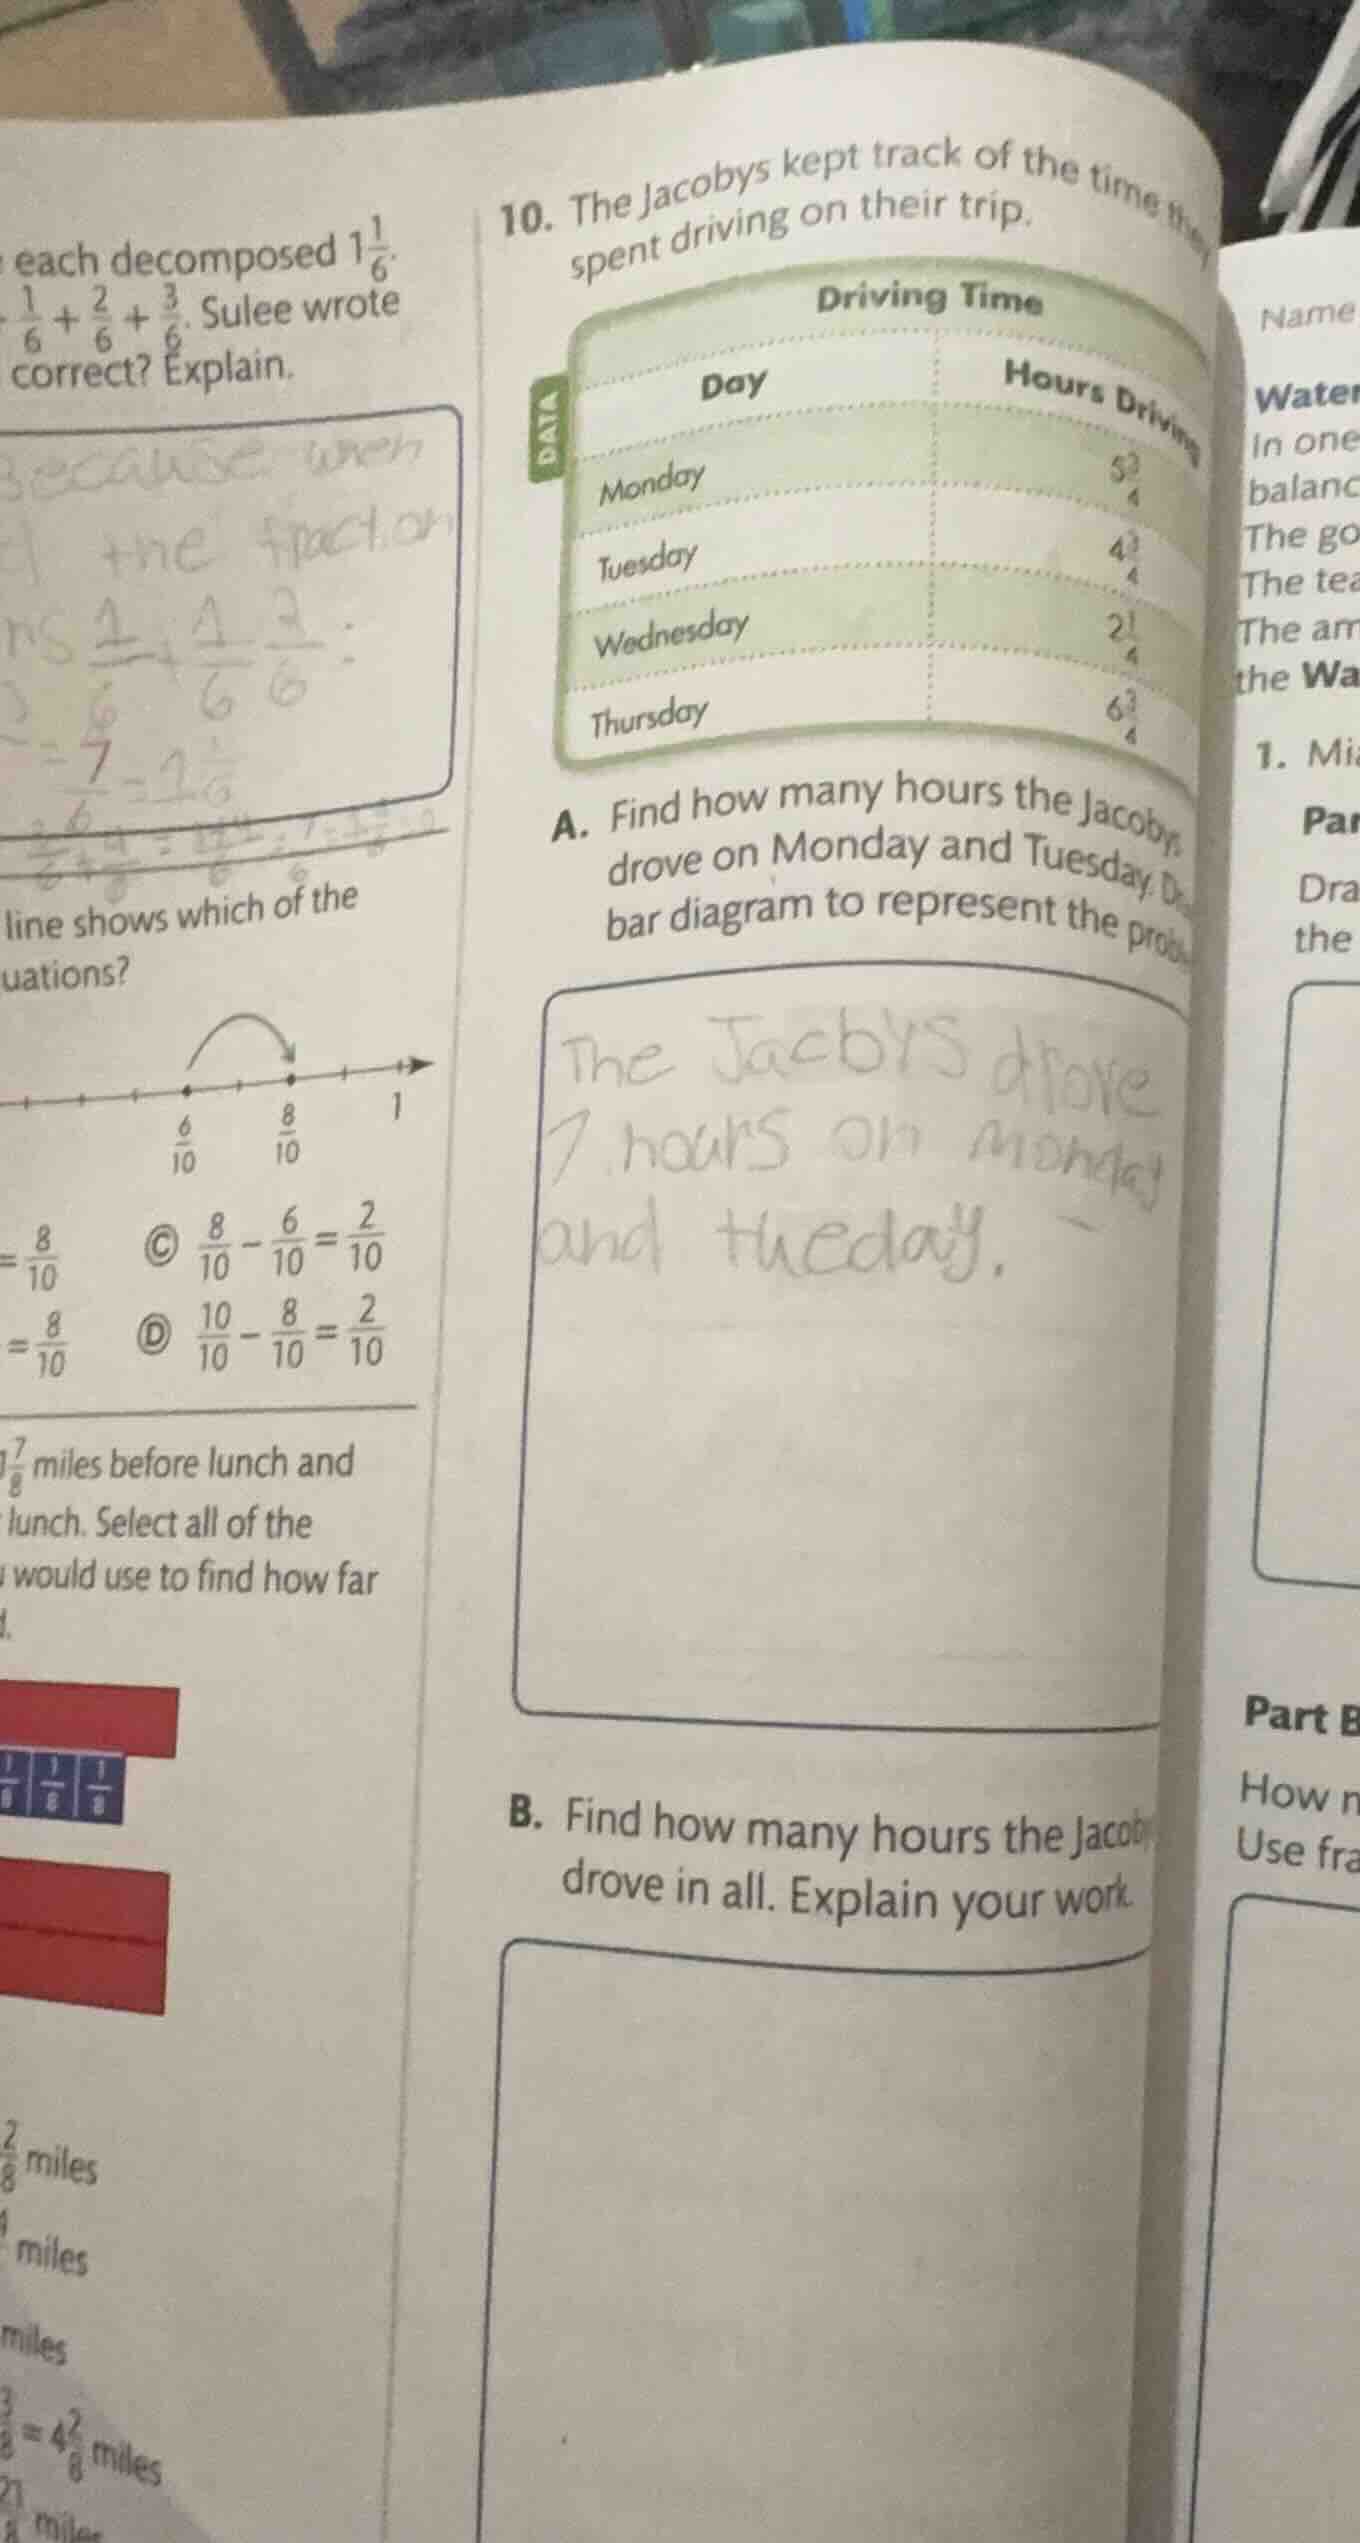 each decomposed 1 1/6.
1/6 + 2/6 + 3/6. Sulee wrote
correct? Explain.
Because when
the fraction
1/6 + 1/6 2/6 :
= 7/6 = 1 1/6
line shows which of the
uations?
6/10 8/10 1
= 8/10 Ⓒ 8/10 − 6/10 = 2/10
= 8/10 Ⓓ 10/10 − 8/10 = 2/10
7/8 miles before lunch and
lunch. Select all of the
would use to find how far
1/8 1/8 1/8
2/8 miles
miles
miles
= 4 2/8 miles
21
10. The Jacobys kept track of the time they
spent driving on their trip.
DATA
Driving Time
Day Hours Driving
Monday 5 3/4
Tuesday 4 3/4
Wednesday 2 1/4
Thursday 6 3/4
A. Find how many hours the Jacobys
drove on Monday and Tuesday.
bar diagram to represent the
The Jacbys drove
7 hours on monday
and thueday.
B. Find how many hours the Jacob
drove in all. Explain your work.
Name
Water
In one
balanc
The go
The tea
The am
the Wa
1. Mia
Par
Dra
the
Part B
How
Use fra